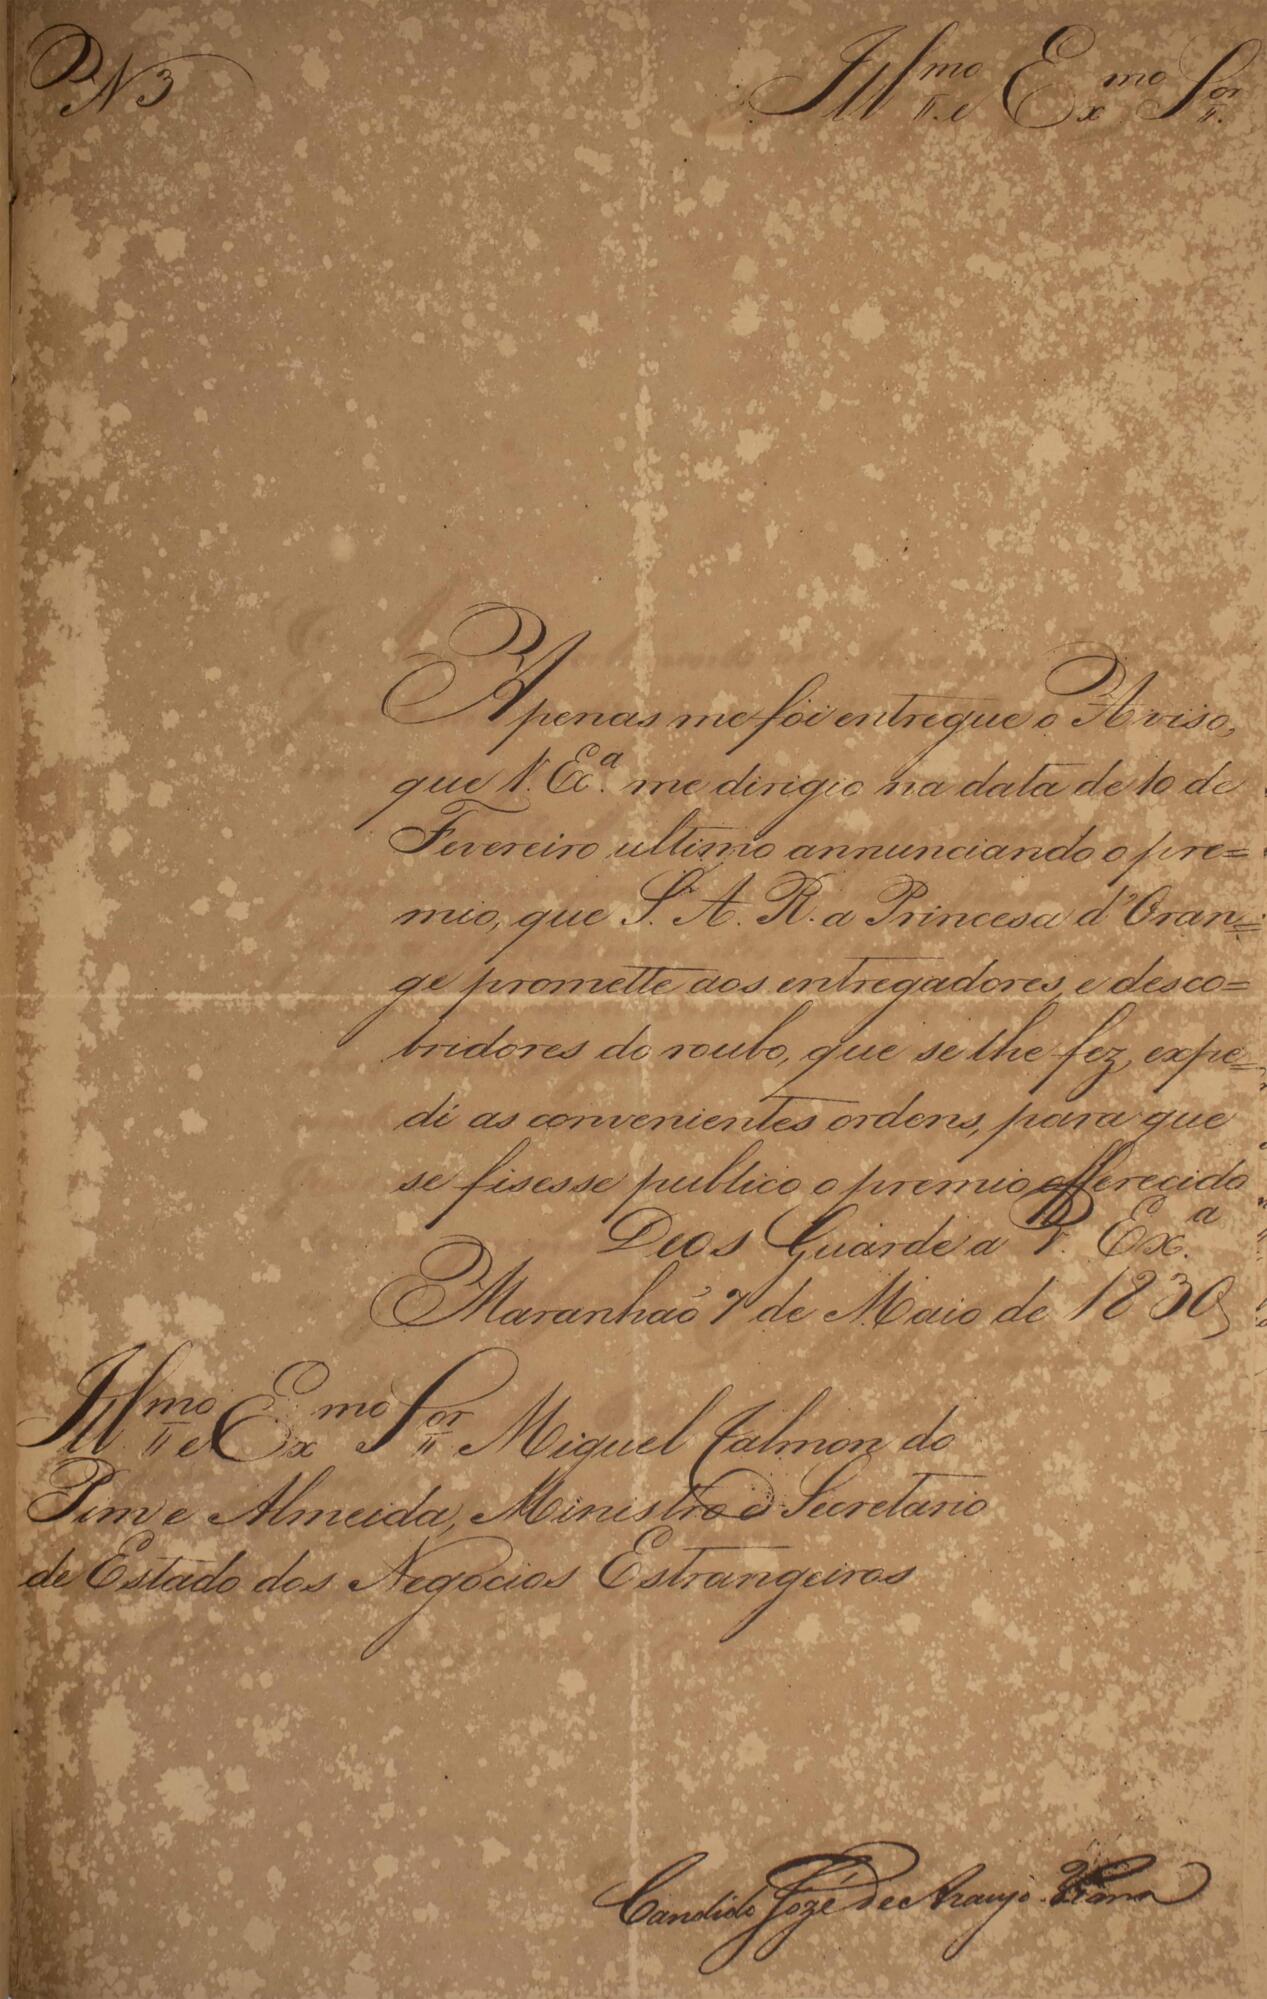 N 3
Ill.mo e Ex.mo Sor.
Apenas me foi entregue o Aviso,
que V. Ex.a me dirigio na data de 10 de
Fevereiro ultimo annunciando o pre=
mio, que S. A. R. a Princesa d'Oran=
ge promette aos entregadores, e desco=
bridores do roubo, que se lhe fez, expe=
di as convenientes ordens, para que
se fisesse publico o premio offerecido
Deos Guarde a V. Ex.a
Maranhão 7 de Maio de 1830
Ill.mo e Ex.mo Sor. Miguel Calmon do
Pim e Almeida, Ministro e Secretario
de Estado dos Negocios Estrangeiros
Candido José de Araujo Viana